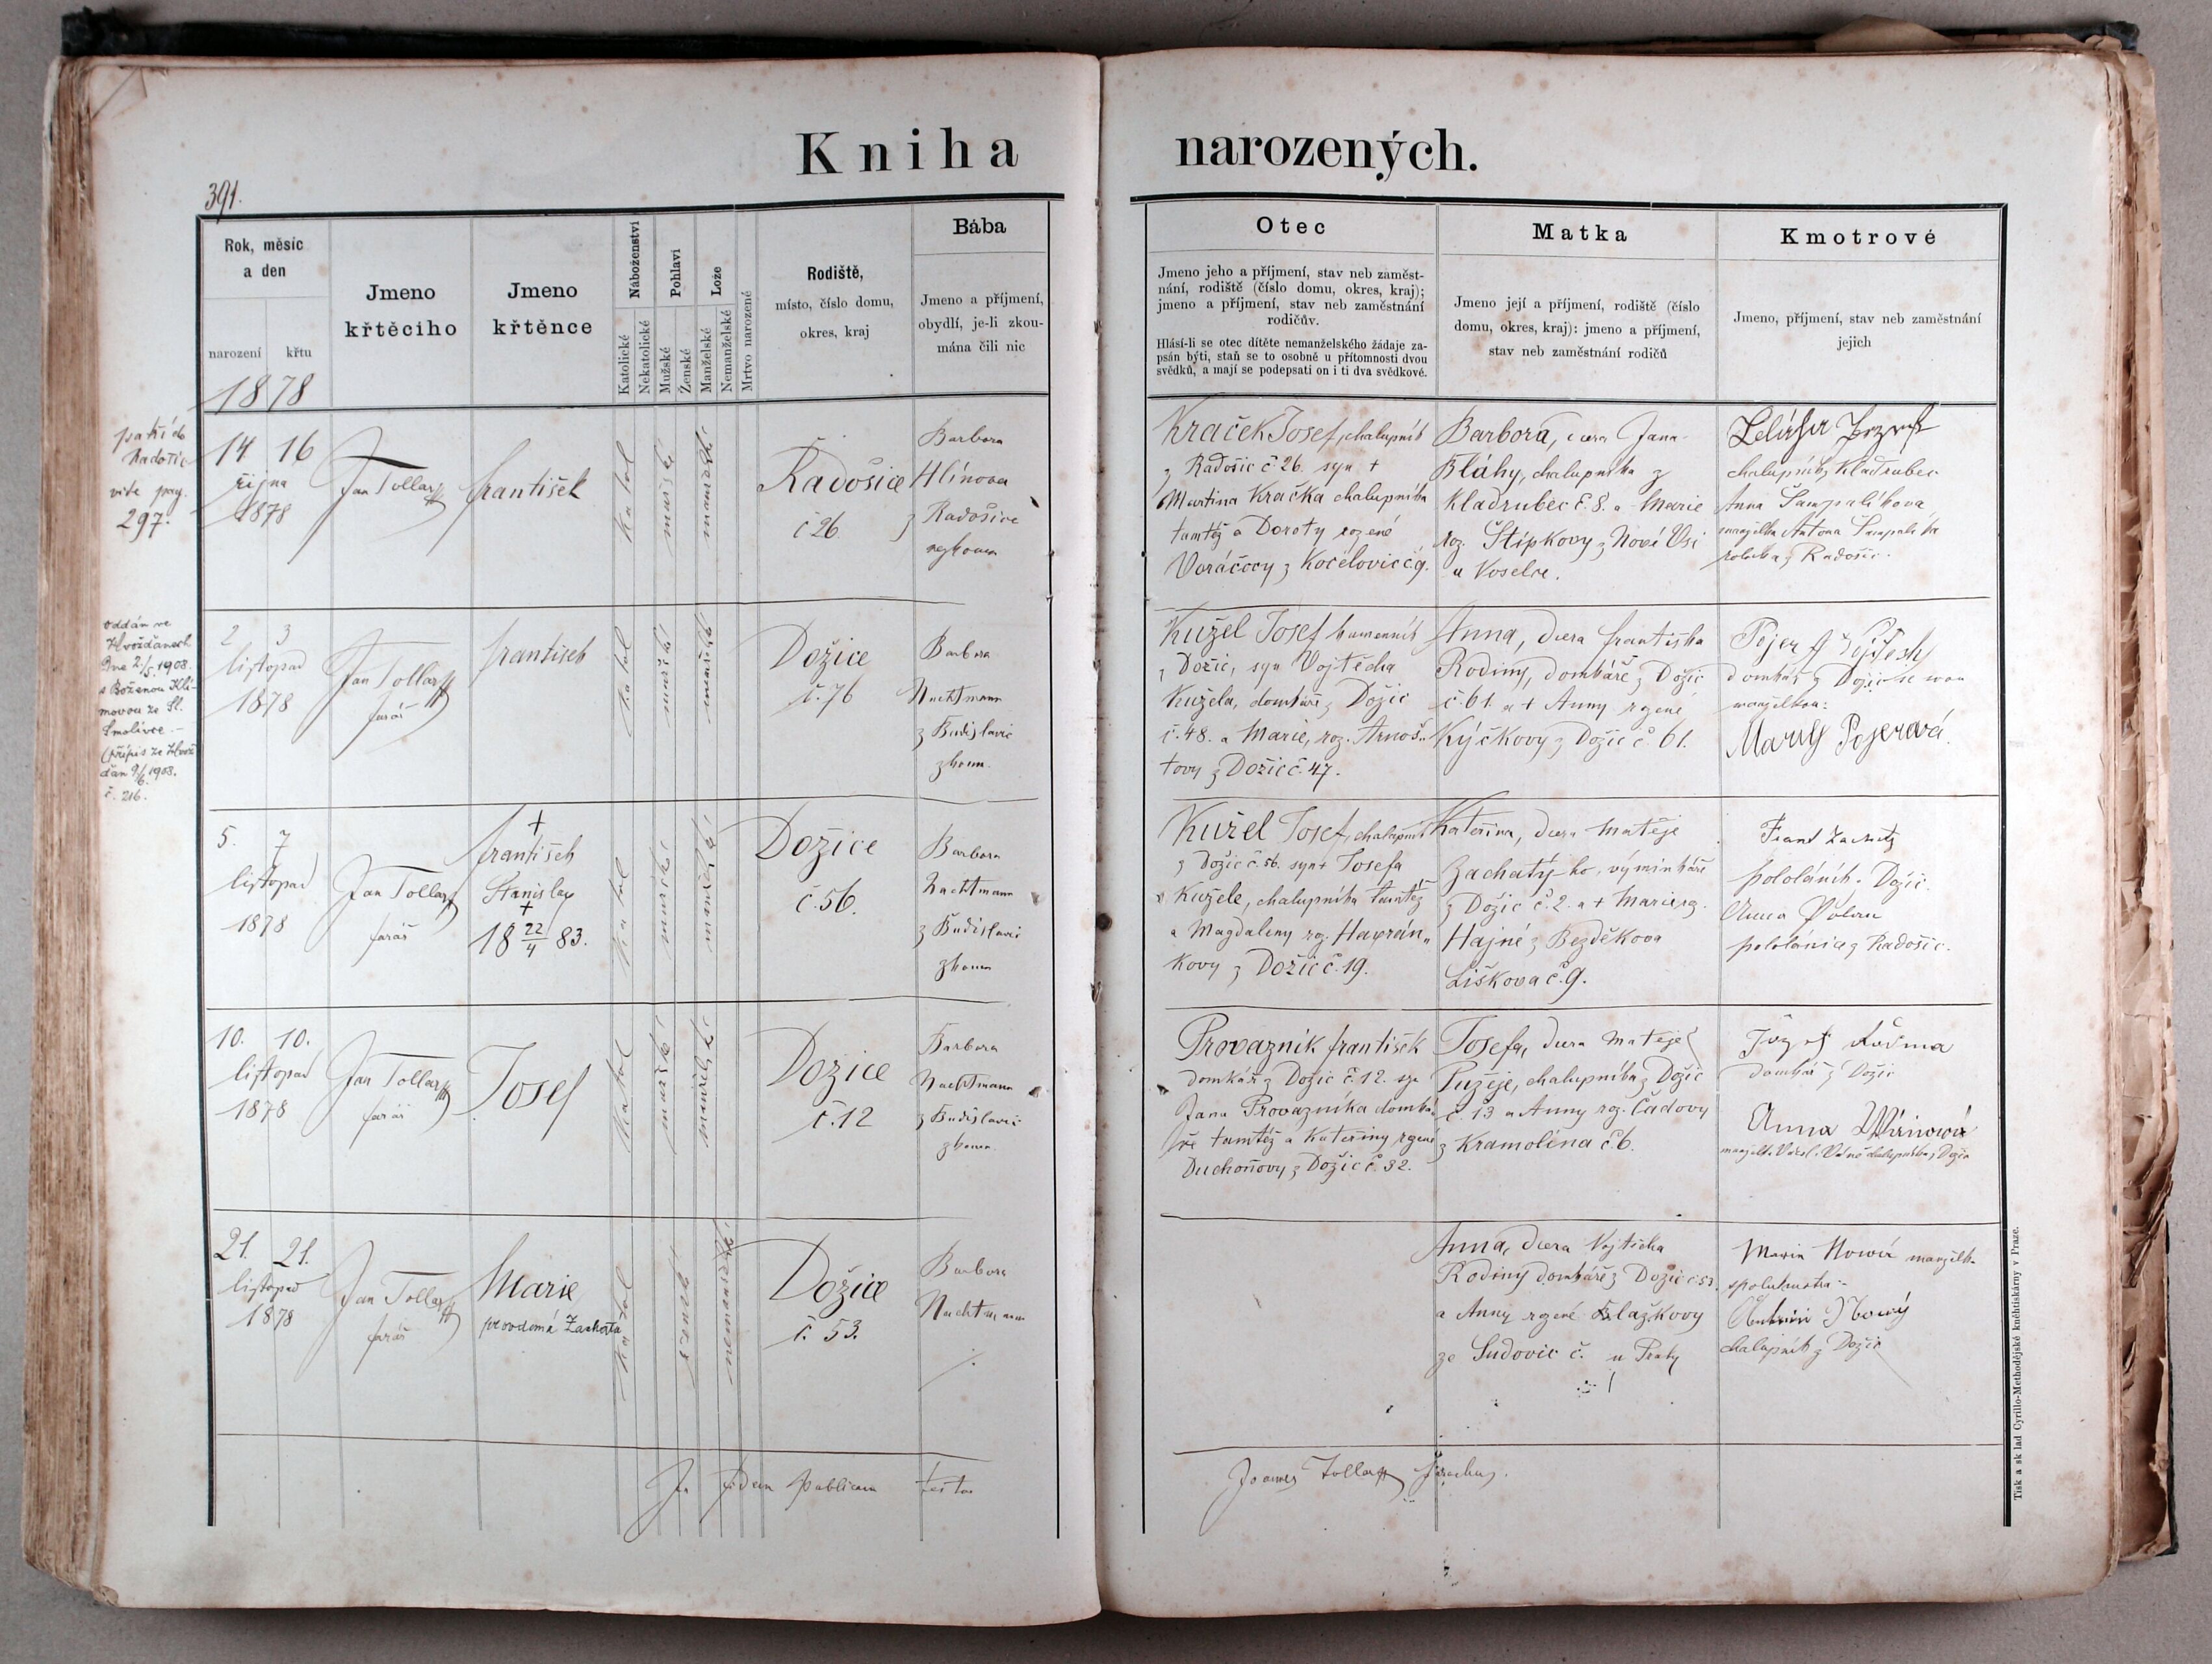 Kniha narozených.
391.
Rok, měsíc
a den
narození
křtu
1878
Jmeno
křtěciho
Jmeno
křtěnce
Náboženství
Katolické
Nekatolické
Pohlaví
Mužské
Ženské
Lože
Manželské
Nemanželské
Mrtvo narozené
Rodiště,
místo, číslo domu,
okres, kraj
Bába
Jmeno a příjmení,
obydlí, je-li zkou-
mána čili nic
Otec
Jmeno jeho a příjmení, stav neb zaměst-
nání, rodiště (číslo domu, okres, kraj);
jmeno a příjmení, stav neb zaměstnání
rodičův.
Hlásí-li se otec dítěte nemanželského žádaje za-
psán býti, staň se to osobně u přítomnosti dvou
svědků, a mají se podepsati on i ti dva svědkové.
Matka
Jmeno její a příjmení, rodiště (číslo
domu, okres, kraj): jmeno a příjmení,
stav neb zaměstnání rodičů
Kmotrové
Jmeno, příjmení, stav neb zaměstnání
jejich
patří do
Radošic
vide pag.
297.
14 16
října
1878
Jan Tollar
František
katol
mužské
manželské
Radošice
č 26.
Barbora
Hlínova
z Radošice
Kraček Josef, chalupník
z Radošic č 26. syn +
Martina Kračka chalupníka
tamtéž a Doroty rozené
Voráčovy z Kočelovic č 9.
Barbora, dcera Jana
Bláhy, chalupníka z
Kladrubec č. 8. a Marie
roz. Štípkovy z Nové Vsi
u Voselce.
chalupník z Kladrubec
Anna
manželka Antona
z Radošic.
oddán ve
Hvožďanech
dne 2/5. 1908.
s Boženou Kli-
movou ze St.
Smolivce. -
(přípis ze Hvož-
ďan 9/6 1908.
č. 216.
2 3
listopad
1878
Jan Tollar
farář
František
katol
mužské
manželské
Dožice
č. 76
Barbora
Nachtmann
z Budislavic
zkoum.
Kužel Josef kamenník
z Dožic, syn Vojtěcha
Kužela, domkáře z Dožic
č. 48. a Marie, roz. Arnoš-
tovy z Dožic č. 47.
Anna, dcera Františka
Rodiny, domkáře z Dožic
č. 61. a + Anny rgené
Kýčkovy z Dožic č 61.
Pojer Vojtech
domkář z Dožic se svou
manželkou:
Mary Pojerová.
5. 7
listopad
1878
Jan Tollar
farář
+
František
Stanislav
+
18 22/4 83.
katol
mužské
manželské
Dožice
č. 56.
Barbora
Nachtmann
z Budislavic
zkoum
Kužel Josef, chalupník
z Dožic č. 56. syn + Josefa
Kužele, chalupníka tamtéž
a Magdaleny rog. Havrán-
kovy z Dožic č. 19.
Kateřina, dcera Matěje
Zachatý-ho, výminkáře
z Dožic č. 2. a + Marie rg.
Hajné z Bezděkova
Liškova č. 9.
pololáník z Dožic.
Anna
pololánice z Radošic.
10. 10.
listopad
1878
Jan Tollar
farář
Josef
katol
mužské
manželské
Dožice
č. 12
Barbora
Nachtmann
z Budislavic
zkoum.
Provazník František
domkář z Dožic č. 12. syn
Jana Provazníka domká-
ře tamtéž a Kateřiny rgené
Duchoňovy z Dožic č. 32.
Josefa, dcera Matěje
Pužeje, chalupníka z Dožic
č. 13 a Anny rog. Čadovy
z Kramolína č. 6.
domkář z Dožic
Anna
21. 21.
listopad
1878
Jan Tollar
farář
Marie
provdaná Zachatá
katol
ženské
nemanželské
Dožice
č. 53.
Barbora
Nachtmann
Anna, dcera Vojtěcha
Rodiny domkáře z Dožic č 53
a Anny rgené Blažkovy
ze Sudovic č. u Prahy
Marie Nowá manželka
spolukmotra
Nowý
chalupník z Dožic
In fidem publicam testor
Joannes Tollar parochus.
Tisk a sklad Cyrillo-Methodějské knihtiskárny v Praze.